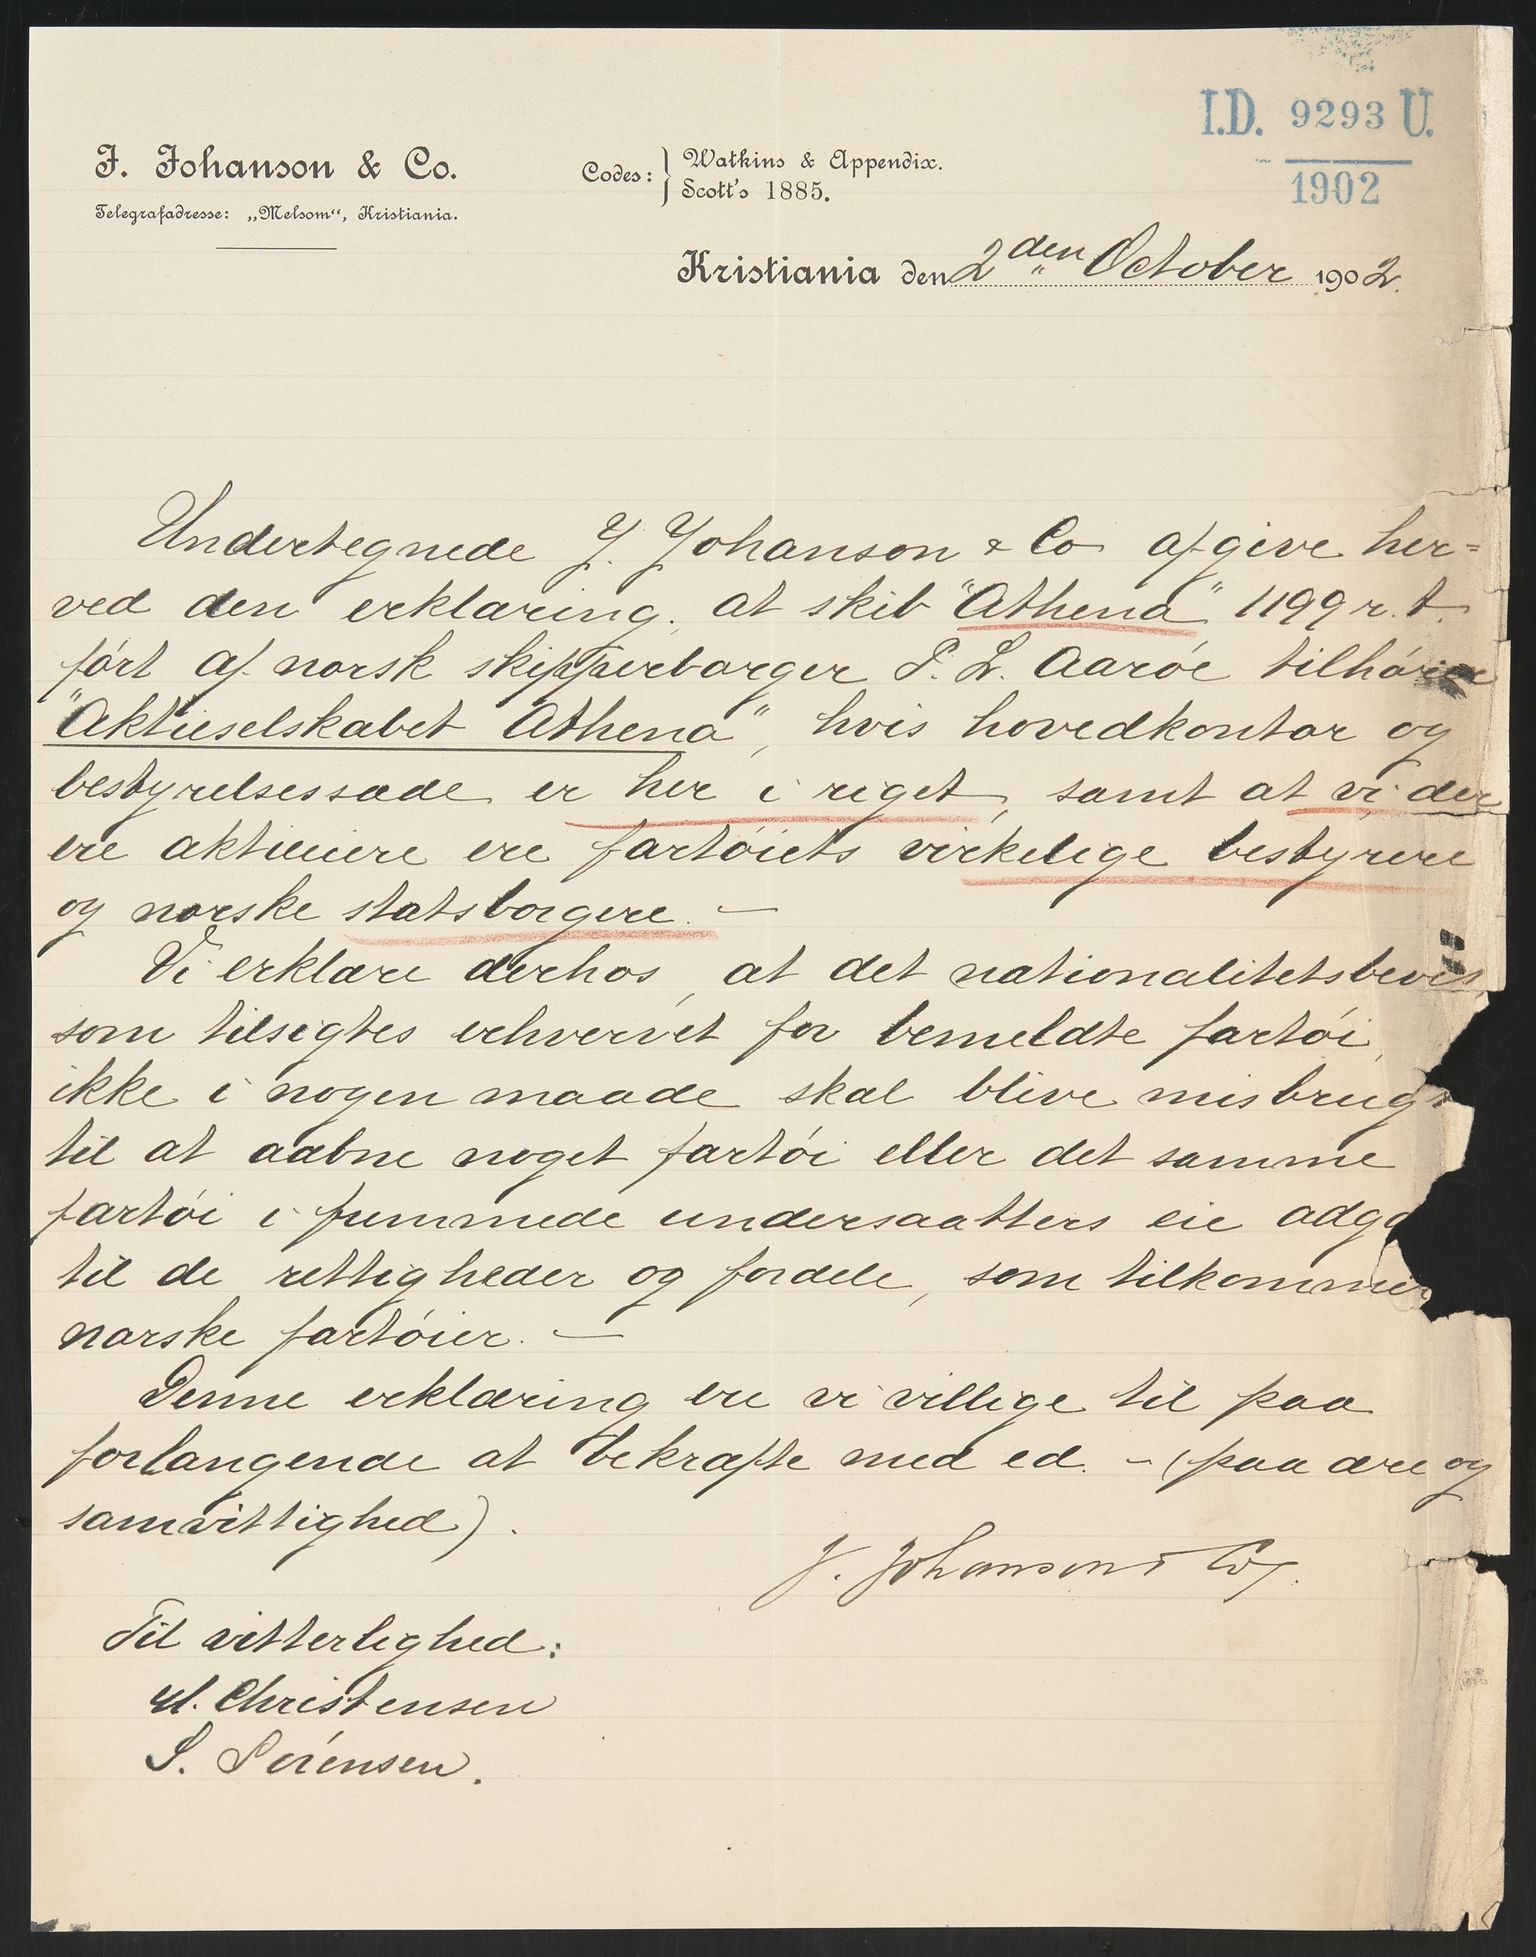 I.D. 9293 U.
1902
J. Johanson & Co.
Telegrafadresse: „Melsom“, Kristiania.
Codes: } Watkins & Appendix.
Scott's 1885.
Kristiania den 2den October 1902.
Undertegnede J. Johanson & Co afgive her=
ved den erklæring, at skib "Athena" 1199 r. t.
ført af norsk skipperborger P. L. Aarøe tilhører
"Aktieselskabet Athena", hvis hovedkontor og
bestyrelsessæde er her i riget, samt at vi der
ere aktieeiere ere fartøiets virkelige bestyrere
og norske statsborgere. —
Vi erklære derhos, at det nationalitetsbevis
som tilsigtes erhvervet for bemeldte fartøi,
ikke i nogen maade skal blive misbrugt
til at aabne noget fartøi eller det samme
fartøi i fremmede undersaatters eie adga
til de rettigheder og fordele, som tilkommer
norske fartøier. —
Denne erklæring ere vi villige til paa
forlangende at bekræfte med ed. - (paa ære og
samvittighed).
J. Johanson & Co.
Til vitterlighed:
Christensen
S. Sørensen.